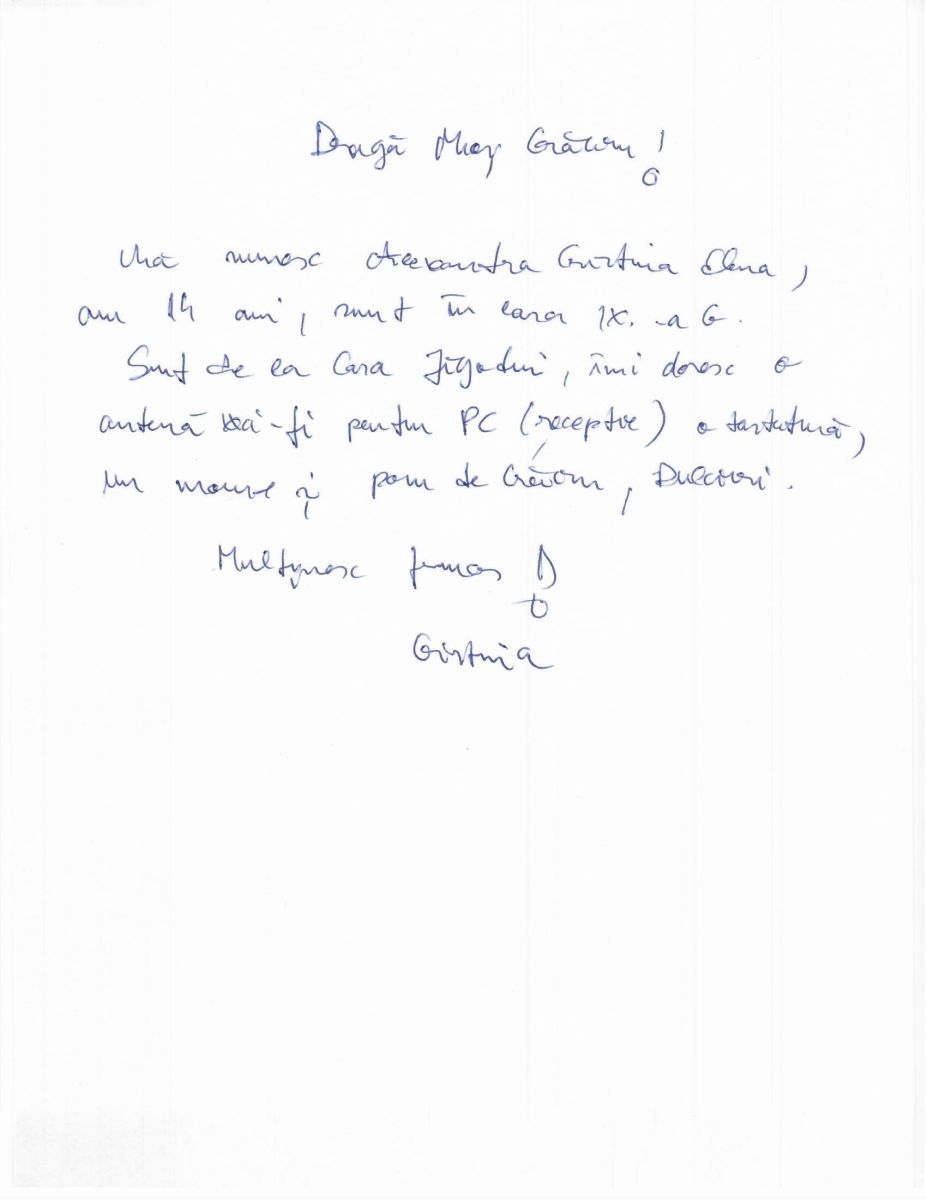 Dragă Moș Crăciun!
Mă numesc Alexandra Cristina Elena,
am 14 ani, sunt în clasa IX. -a G.
Sunt de la Casa Jigodin, îmi doresc o
antenă wi-fi pentru PC (receptor) o tastatură,
un mouse și pom de Crăciun, Dulciuri.
Mulțumesc frumos
Cristina